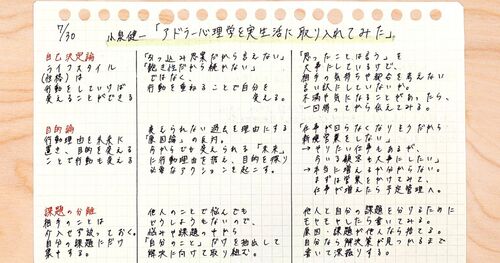 7/30 小泉健一「アドラー心理学を実生活に取り入れてみた」
自己決定論
ライフスタイル
(性格)は
行動をしていけば
変えることができる
「引っ込み思案だから言えない」
「飽き性だから続かない」
ではなく、
行動を重ねることで自分を
変える。
「思ったことは言う」を
大事にしているけど、
相手の気持ちや都合を考えない
言い訳にしていないか。
不満や気になることがあったら、
一回書ってから伝えてみる。
目的論
行動理由を未来に
置き、目的を変える
ことで行動も変える
変えられない過去を理由にする
「原因論」の反対。
今からでも変えられる「未来」
に行動理由を据え、目的を探り
必要なアクションを起こす。
「仕事が回らなくなりそうだから
新規営業をしない」
→やりたい仕事もあるが、
今いる顧客も大事にしたい。
→本当に増えるか分からない。
まずは営業をかけてみて、
仕事が増えたら予定管理へ。
課題の分離
相手のことには
介入せず放っておく。
自分の課題にだけ
集中する。
他人のことで悩んでも
どうしようもないので、
悩みや課題の中から
「自分のこと」だけを抽出して
解決に向けて取り組む。
他人と自分の課題を分けるために
モヤモヤしたら書いてみる。
原因・課題が他人なら捨てる。
自分なら解決策が見つかるまで
書いて深掘りする。